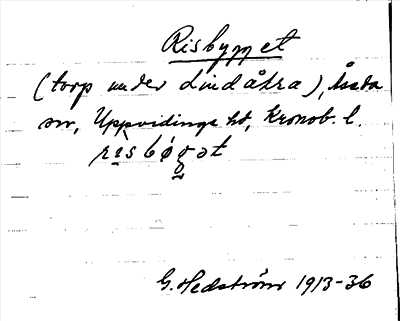 Risbygget
(torp under Lindåkra), Åseda
sn, Uppvidinge hd, Kronob. l.
risbøgət
G. Hedström 1913-36